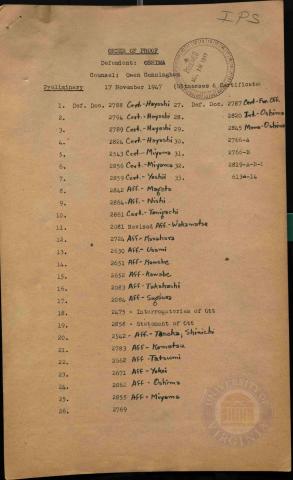 IPS
ORDER OF PROOF
Defendant: OSHIMA
Counsel: Owen Cunningham
Preliminary 17 November 1947 (Witnesses & Certificates
1. Def. Doc. 2788 Cert-Hayashi 27. Def. Doc. 2787 Cert-For. Off.
2. 2794 Cert-Hayashi 28. 2820 Int-Oshima
3. 2789 Cert-Hayashi 29. 2845 Memo-Oshima
4. 2824 Cert-Hayashi 30. 2766-A
5. 2543 Cert-Miyama 31. 2766-B
6. 2856 Cert-Miyama 32. 2819-A-B-1
7. 2859 Cert-Yoshii 33. 613A-14
8. 2842 Aff-
9. 2864 Aff-Nishi
10. 2861 Cert-Taniguchi
11. 2081 Revised Aff-Wakamatsu
12. 2724 Aff-Kasahara
13. 2630 Aff-Usami
14. 2651 Aff-Kawabe
15. 2652 Aff-Kawabe
16. 2083 Aff-Takahashi
17. 2084 Aff-Sugiura
18. 2475 - Interrogatories of Ott
19. 2858 - Statement of Ott
20. 2542 - Aff-Tanaka, Shinichi
21. 2783 Aff-Komatsu
22. 2662 Aff-Tatsumi
23. 2671 Aff-Yokoi
24. 2862 Aff-Oshima
25. 2855 Aff-Miyama
26. 2769
UNIVERSITY OF
VIRGINIA